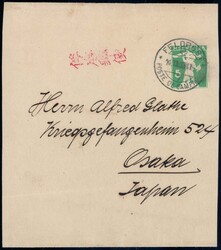 FELDPO
POSTE DE CAMP
5
Herrn Alfred Glathe
Kriegsgefangenheim 524
Osaka
Japan